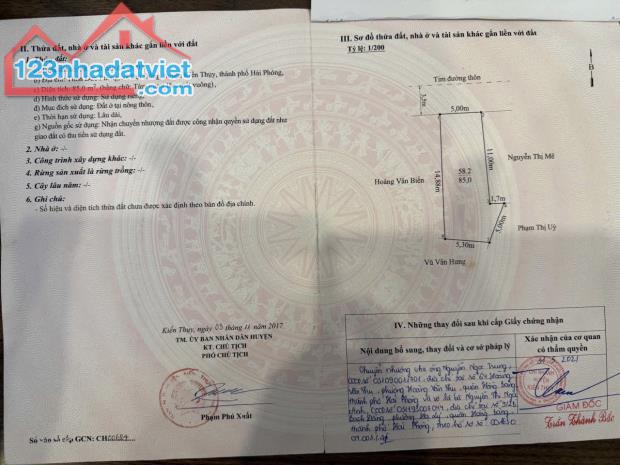 II. Thửa đất, nhà ở và tài sản khác gắn liền với đất
123nhadatviet.com
Thụy, thành phố Hải Phòng,
c) Diện tích: 85,0 m², (bằng chữ: vuông),
d) Hình thức sử dụng: Sử dụng riêng,
đ) Mục đích sử dụng: Đất ở tại nông thôn,
e) Thời hạn sử dụng: Lâu dài,
g) Nguồn gốc sử dụng: Nhận chuyển nhượng đất được công nhận quyền sử dụng đất như
giao đất có thu tiền sử dụng đất.
2. Nhà ở: -/-
3. Công trình xây dựng khác: -/-
4. Rừng sản xuất là rừng trồng: -/-
5. Cây lâu năm: -/-
6. Ghi chú:
- Số hiệu và diện tích thửa đất chưa được xác định theo bản đồ địa chính.
Kiến Thụy, ngày 03 tháng 11 năm 2017
TM. ỦY BAN NHÂN DÂN HUYỆN
KT. CHỦ TỊCH
PHÓ CHỦ TỊCH
Phạm Phú Xuất
Số vào sổ cấp GCN: CH
III. Sơ đồ thửa đất, nhà ở và tài sản khác gắn liền với đất
Tỷ lệ: 1/200
B
Tim đường thôn
5,00m
11,00m
Nguyễn Thị Mê
Hoàng Văn Biên
14,88m
58.2
85,0
1,7m
5,00m
Phạm Thị Uý
5,30m
Vũ Văn Hưng
IV. Những thay đổi sau khi cấp Giấy chứng nhận
Nội dung bổ sung, thay đổi và cơ sở pháp lý
Xác nhận của cơ quan
có thẩm quyền
Chuyển nhượng cho ông Nguyễn Ngọc Trung,
địa chỉ tại số Hoàng
Văn Thụ, phường Hoàng Văn Thụ, quận Hồng Bàng,
thành phố Hải Phòng và vợ là bà Nguyễn Thị Ngọc
địa chỉ tại số
Bạch Đằng, phường Hạ Lý, quận Hồng Bàng,
thành phố Hải Phòng, theo hồ sơ số
2021
GIÁM ĐỐC
Trần Thành Bắc